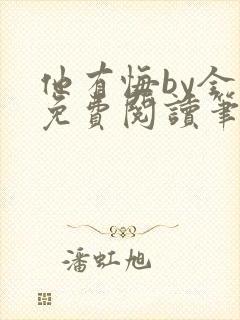 他有悔by金
免費閱讀筆
潘虹旭